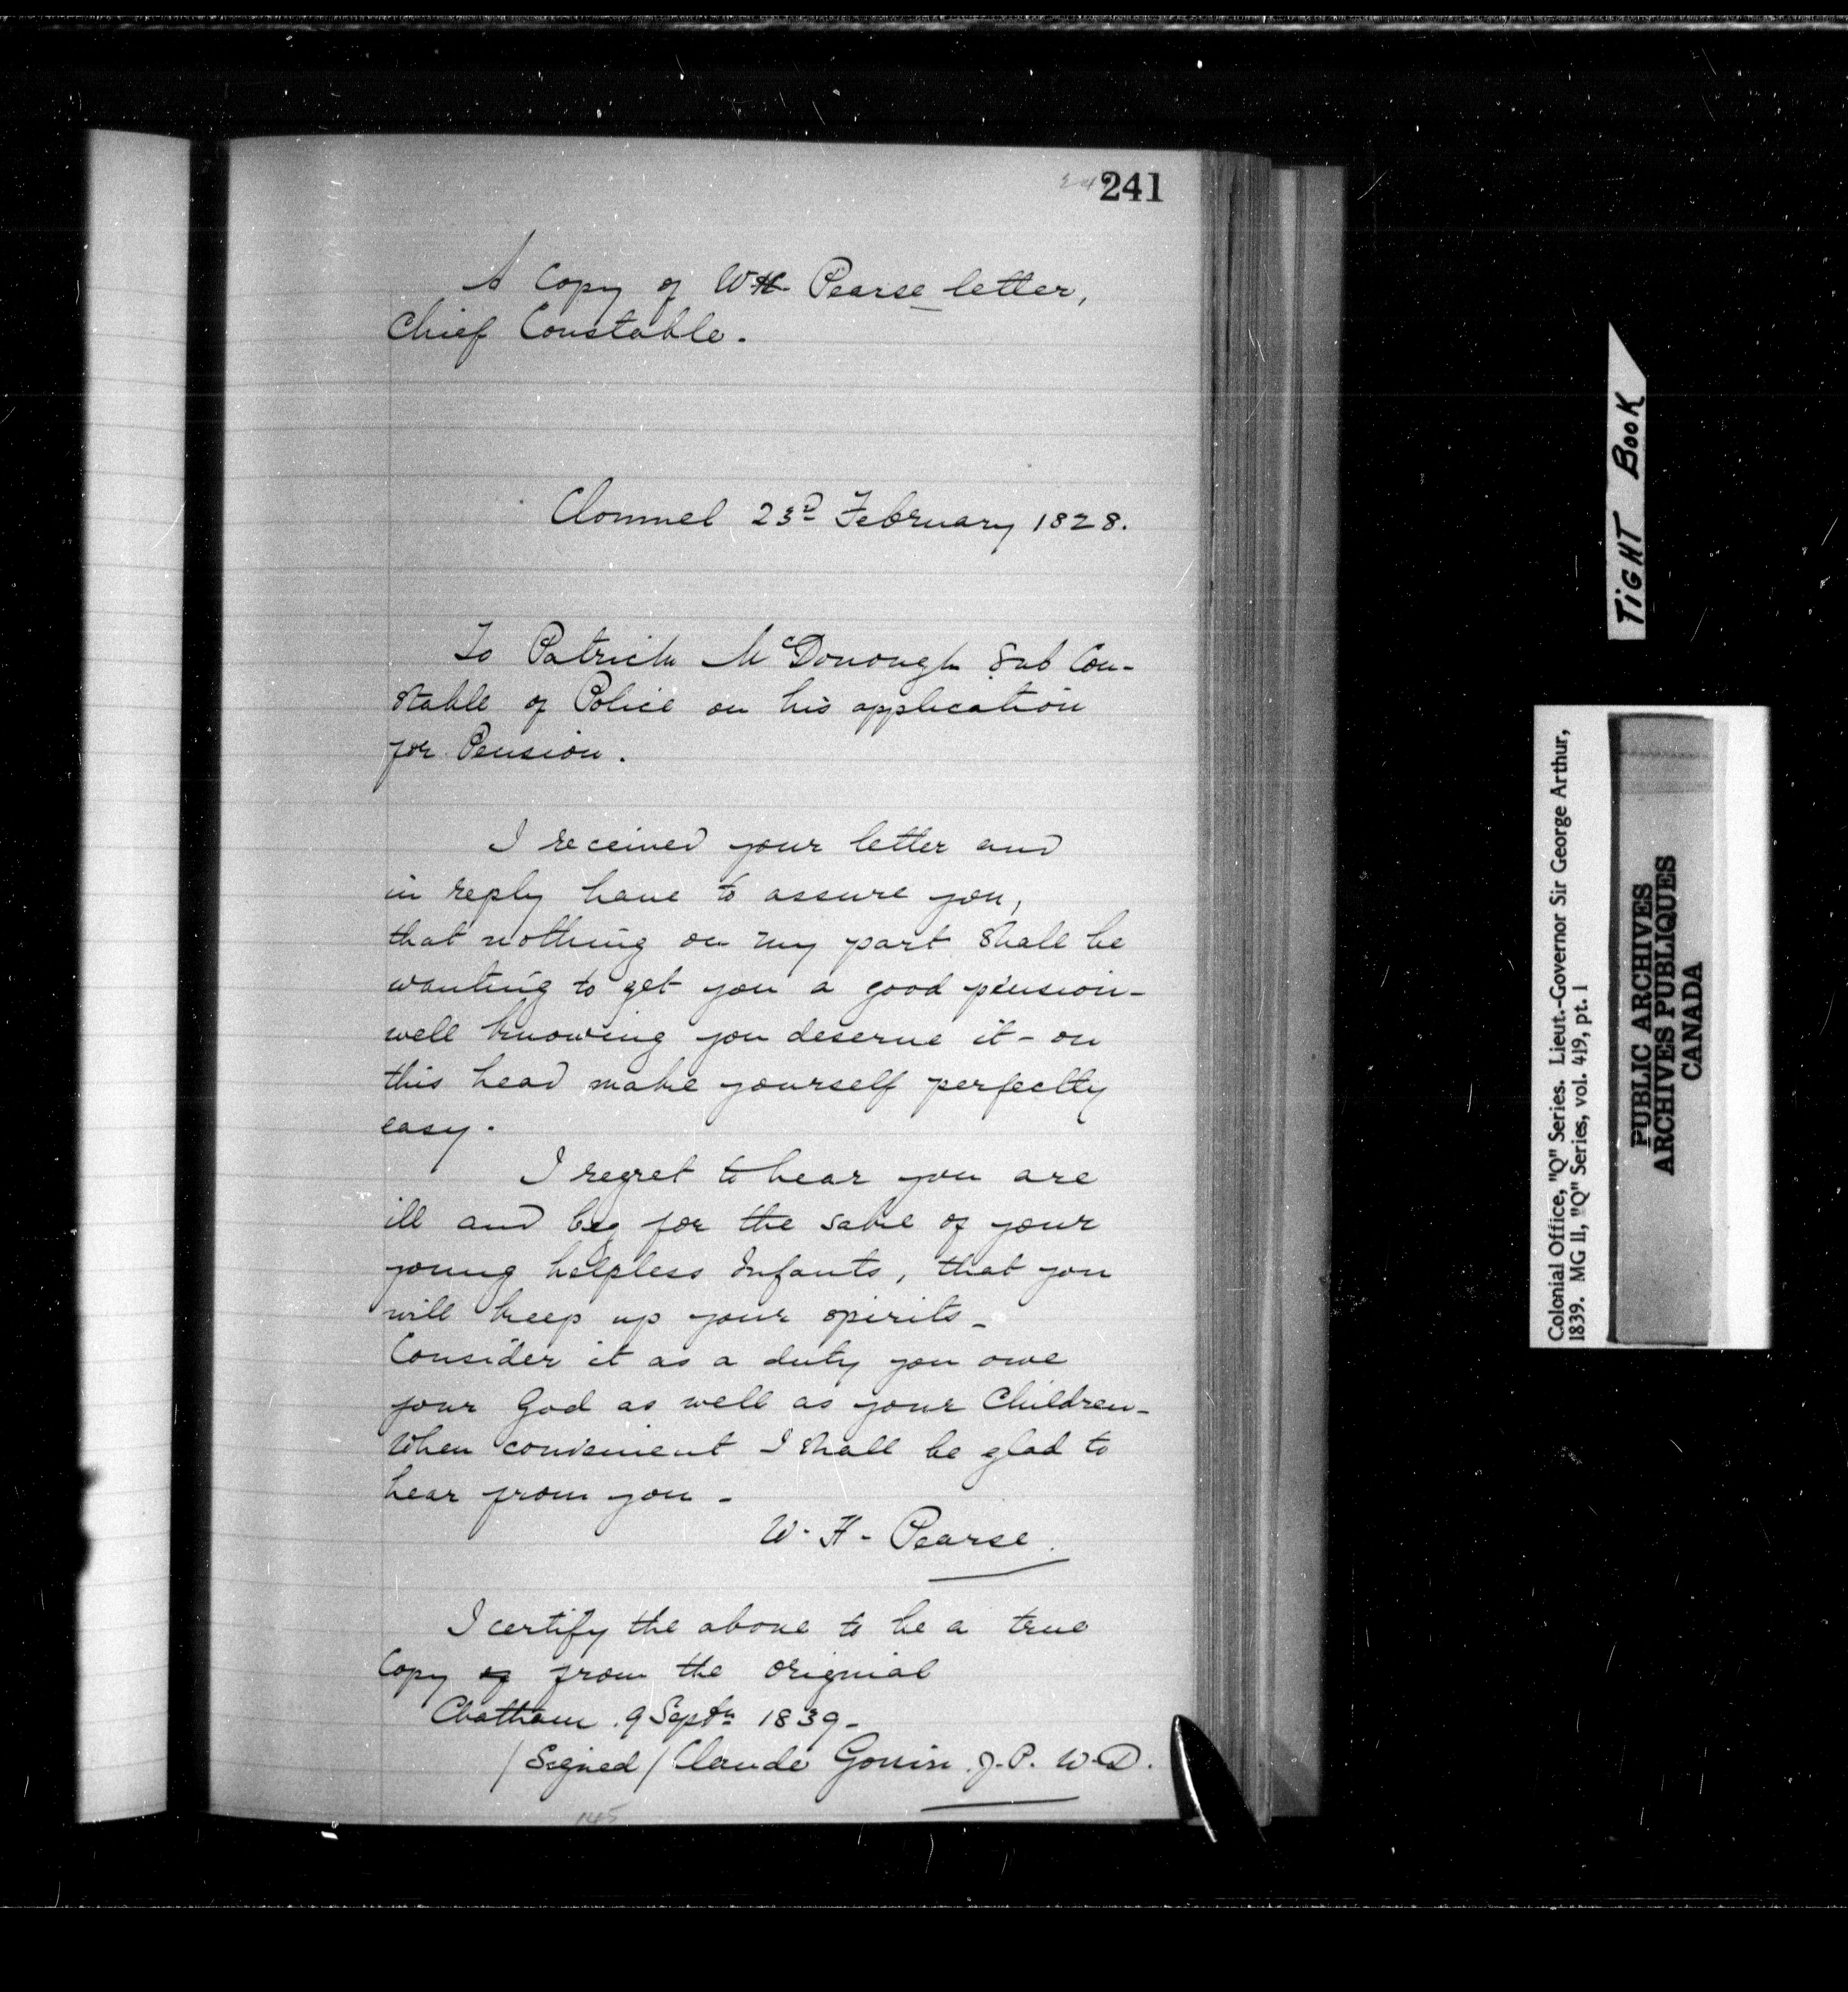 241
A Copy of WH Pearse letter,
Chief Constable.
Clonmel 23d February 1828.
To Patrick McDonough Sub Con-
stable of Police on his application
for Pension.
I received your letter and
in reply have to assure you,
that nothing on my part shall be
wanting to get you a good pension-
well knowing you deserve it - on
this head make yourself perfectly
easy.
I regret to hear you are
ill and beg for the sake of your
young helpless Infants, that you
will keep up your spirits -
Consider it as a duty you owe
your God as well as your Children -
When convenient I shall be glad to
hear from you -
W. H - Pearse.
I certify the above to be a true
Copy of from the original
Chatham. 9 Septr 1839 -
/ Signed / Claude Gouin. J. P. W. D.
145
TIGHT BOOK
Colonial Office, "Q" Series. Lieut.-Governor Sir George Arthur,
1839. MG 11, "Q" Series, vol. 419, pt. 1
PUBLIC ARCHIVES
ARCHIVES PUBLIQUES
CANADA